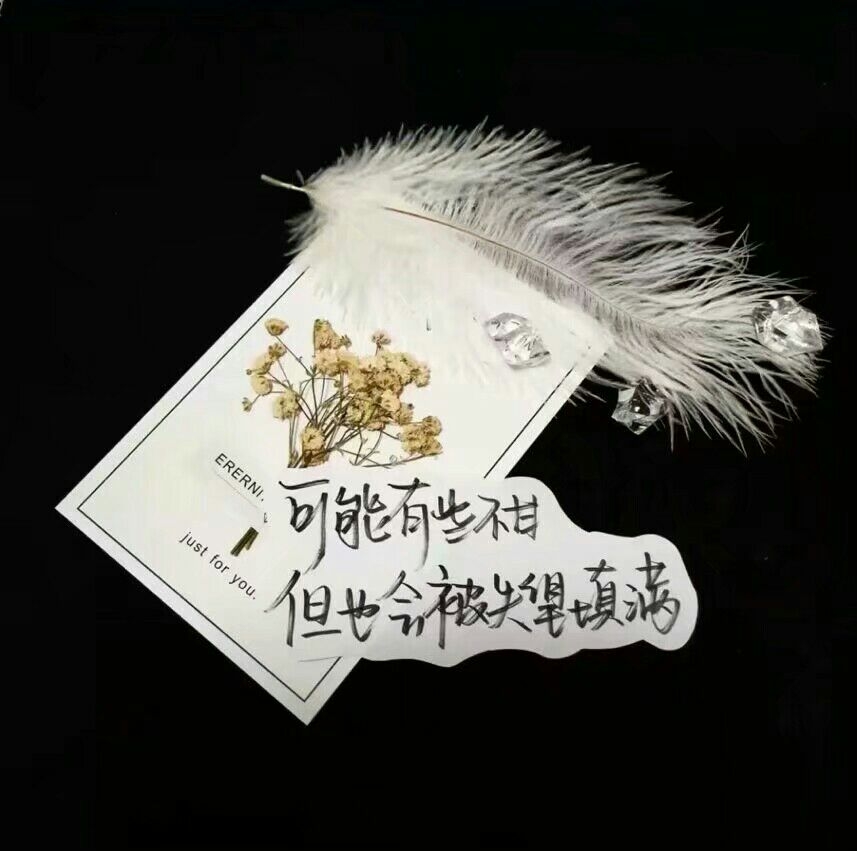 ERERNI.
just for you.
可能有些不甘
但也会被失望填满